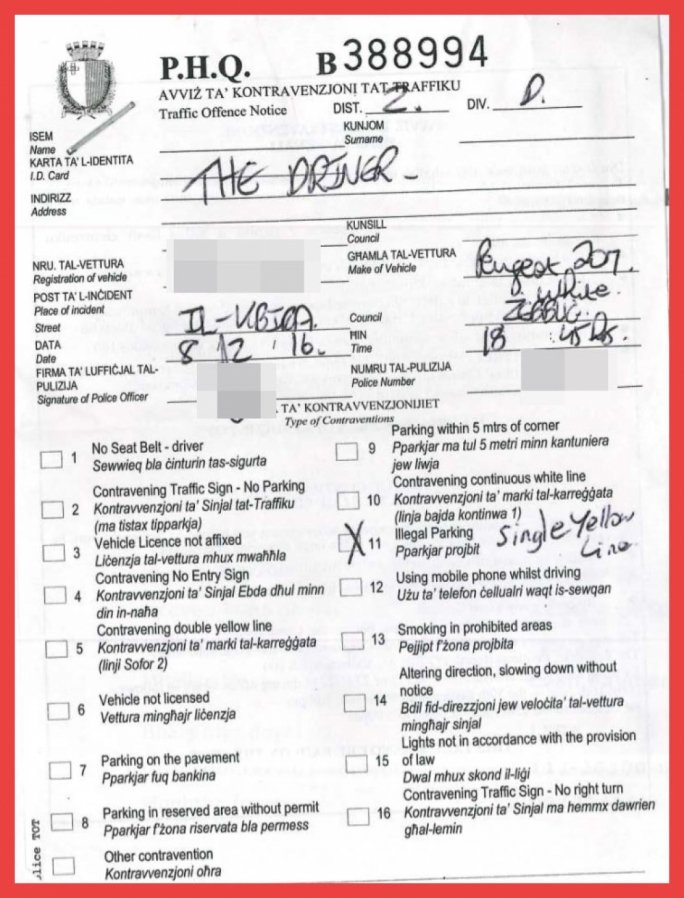 P.H.Q. B388994
AVVIŻ TA' KONTRAVENZJONI TAT-TRAFFIKU
Traffic Offence Notice DIST. 2. DIV. D.
ISEM KUNJOM
Name Surname
KARTA TA' L-IDENTITA
I.D. Card THE DRIVER
INDIRIZZ
Address
KUNSILL
Council
NRU. TAL-VETTURA GĦAMLA TAL-VETTURA Peugeot 207.
Registration of vehicle Make of Vehicle
POST TA' L-INĊIDENT white.
Place of incident
Street Council ZEBBUG.
DATA 8 12 16. ĦIN 18 45 hrs.
Date Time
FIRMA TA' L-UFFIĊJAL TAL- NUMRU TAL-PULIZIJA
PULIZIJA Police Number
Signature of Police Officer
TA' KONTRAVVENZJONIJIET
Type of Contraventions
1 No Seat Belt - driver
Sewwieq bla ċinturin tas-sigurta
2 Contravening Traffic Sign - No Parking
Kontravvenzjoni ta' Sinjal tat-Traffiku
(ma tistax tipparkja)
3 Vehicle Licence not affixed
Liċenzja tal-vettura mhux mwaħħla
4 Contravening No Entry Sign
Kontravvenzjoni ta' Sinjal Ebda dħul minn
din in-naħa
5 Contravening double yellow line
Kontravvenzjoni ta' marki tal-karreġġata
(linji Sofor 2)
6 Vehicle not licensed
Vettura mingħajr liċenzja
7 Parking on the pavement
Pparkjar fuq bankina
8 Parking in reserved area without permit
Pparkjar f'żona riservata bla permess
Other contravention
Kontravvenzjoni oħra
9 Parking within 5 mtrs of corner
Pparkjar ma tul 5 metri minn kantuniera
jew liwja
10 Contravening continuous white line
Kontravvenzjoni ta' marki tal-karreġġata
(linja bajda kontinwa 1)
X 11 Illegal Parking Single Yellow
Pparkjar projbit Line
12 Using mobile phone whilst driving
Użu ta' telefon ċellualri waqt is-sewqan
13 Smoking in prohibited areas
Pejjipt f'żona projbita
14 Altering direction, slowing down without
notice
Bdil fid-direzzjoni jew veloċita' tal-vettura
mingħajr sinjal
15 Lights not in accordance with the provision
of law
Dwal mhux skond il-liġi
16 Contravening Traffic Sign - No right turn
Kontravvenzjoni ta' Sinjal ma hemmx dawrien
għal-lemin
lice TOT